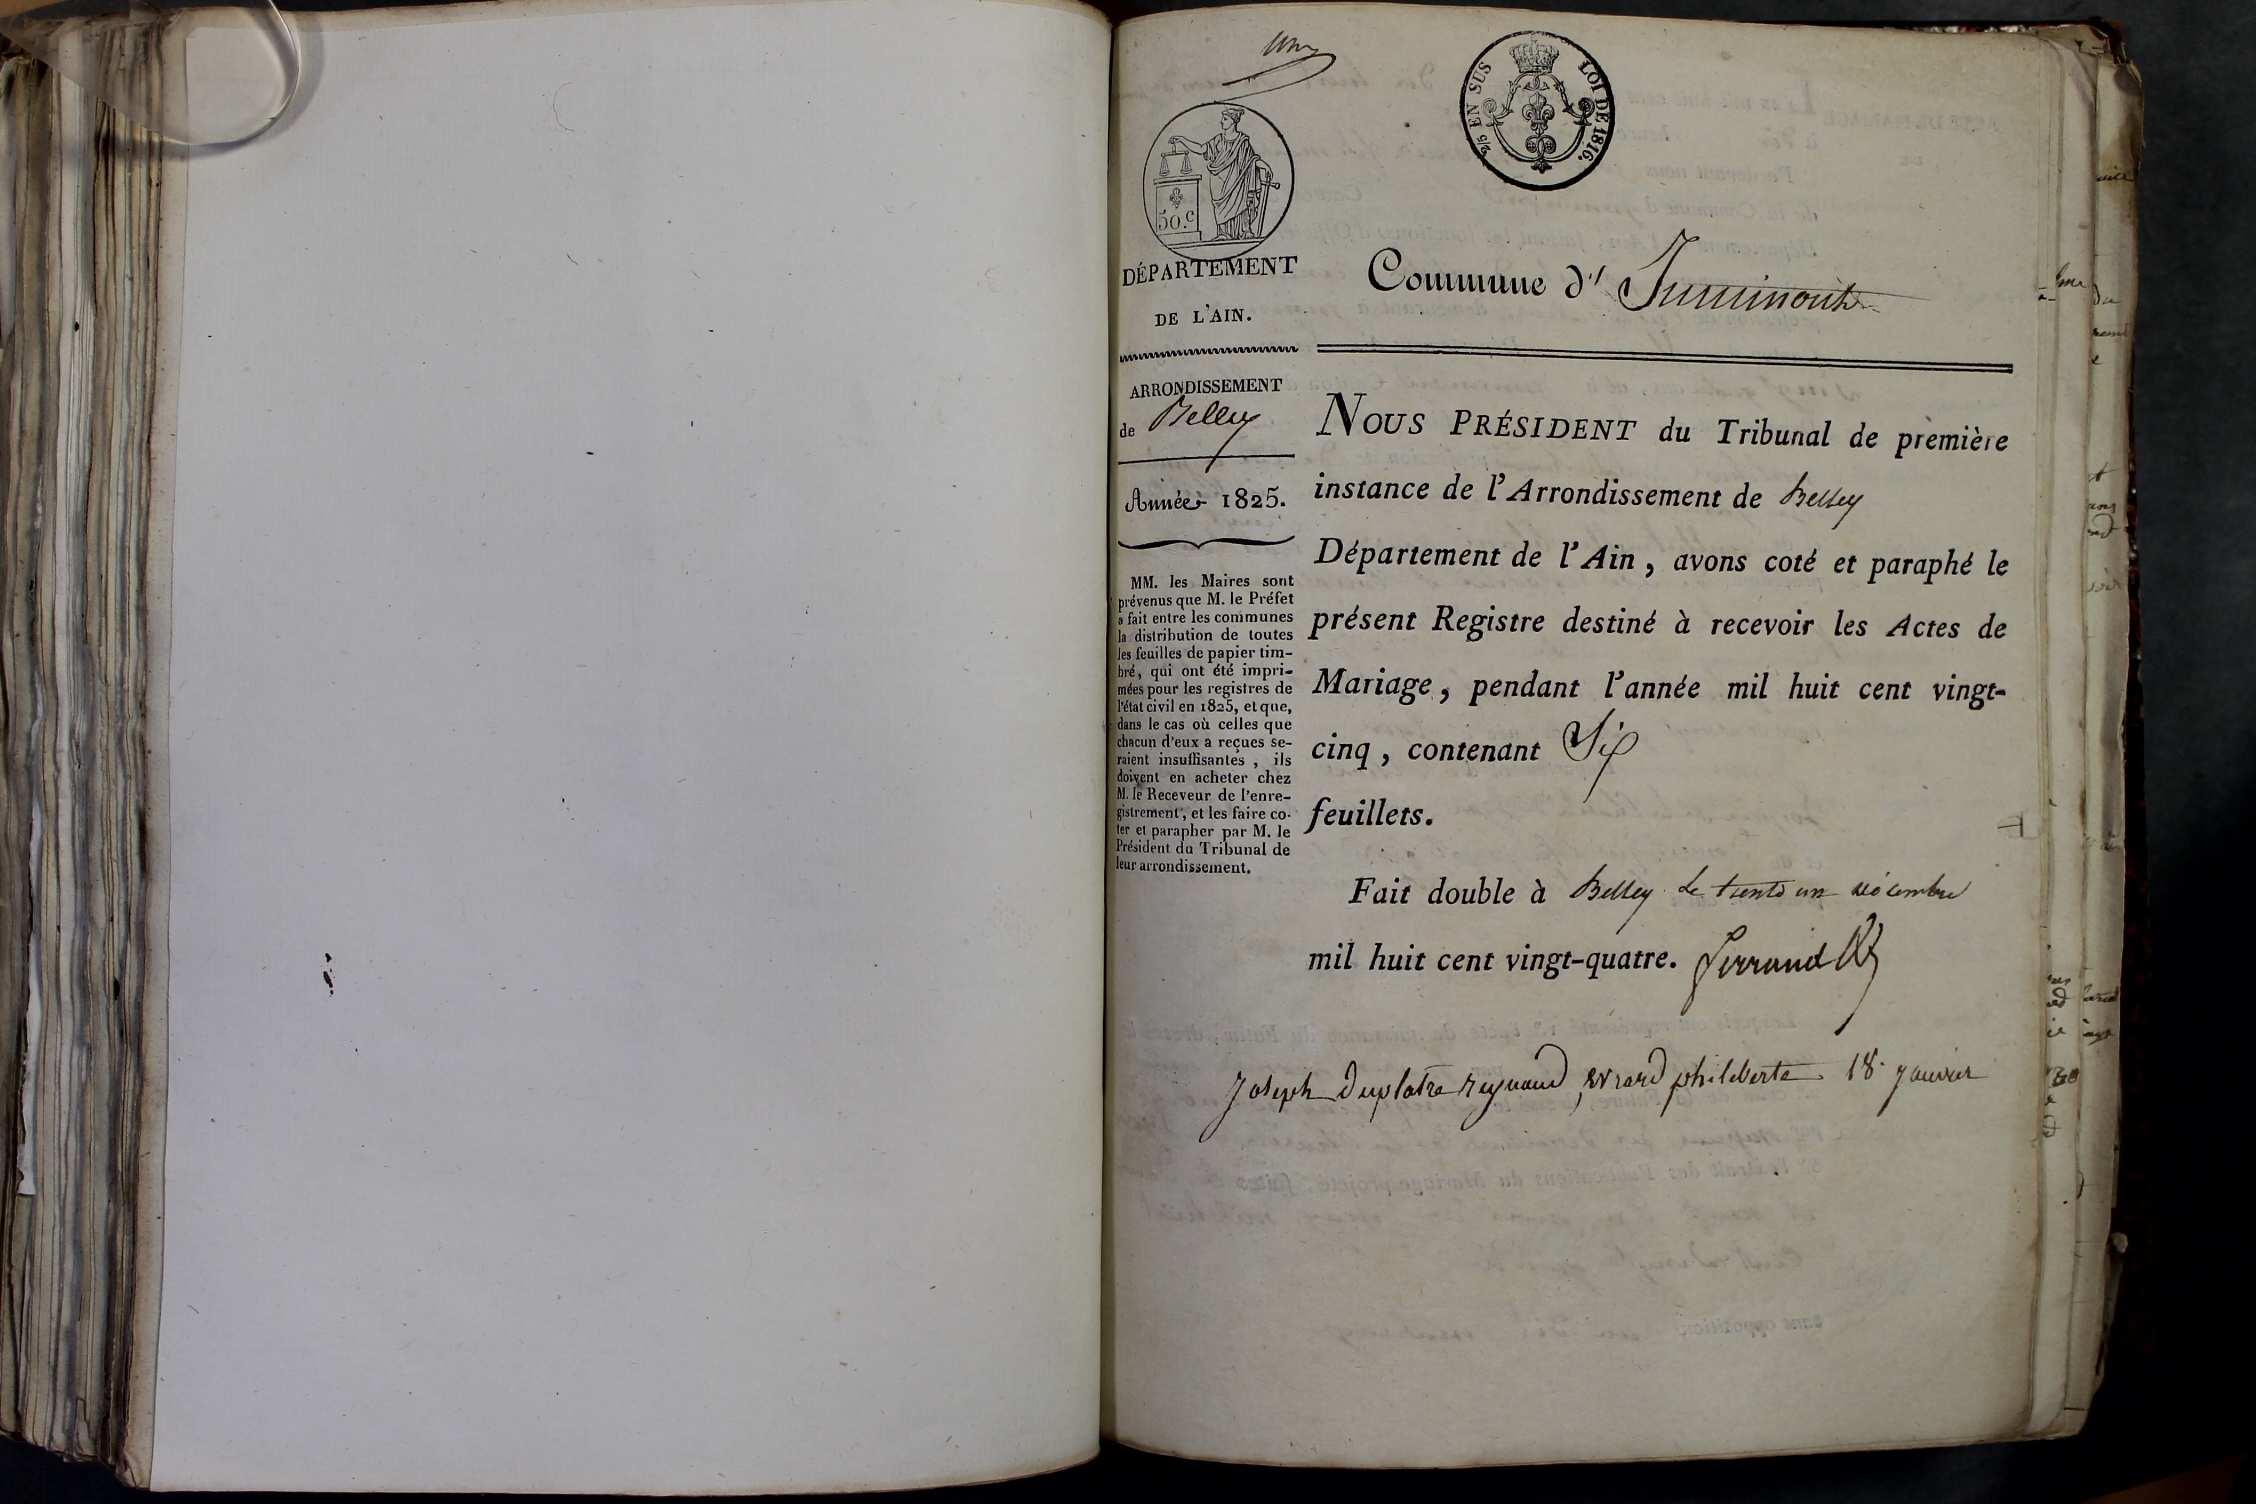 un
2/5 EN SUS LOI DE 1816.
50.c
DÉPARTEMENT
DE L'AIN.
Commune d' Injurieux
ARRONDISSEMENT
de Belley
Année 1825.
MM. les Maires sont
prévenus que M. le Préfet
a fait entre les communes
la distribution de toutes
les feuilles de papier tim-
bré, qui ont été impri-
mées pour les registres de
l'état civil en 1825, et que,
dans le cas où celles que
chacun d'eux a reçues se-
raient insuffisantes, ils
doivent en acheter chez
M. le Receveur de l'enre-
gistrement, et les faire co-
ter et parapher par M. le
Président du Tribunal de
leur arrondissement.
NOUS PRÉSIDENT du Tribunal de première
instance de l'Arrondissement de Belley
Département de l'Ain, avons coté et paraphé le
présent Registre destiné à recevoir les Actes de
Mariage, pendant l'année mil huit cent vingt-
cinq, contenant Six
feuillets.
Fait double à Belley le trente un décembre
mil huit cent vingt-quatre. Ferrand
Joseph Duplatre reynaud, evrard philiberte 18 janvier